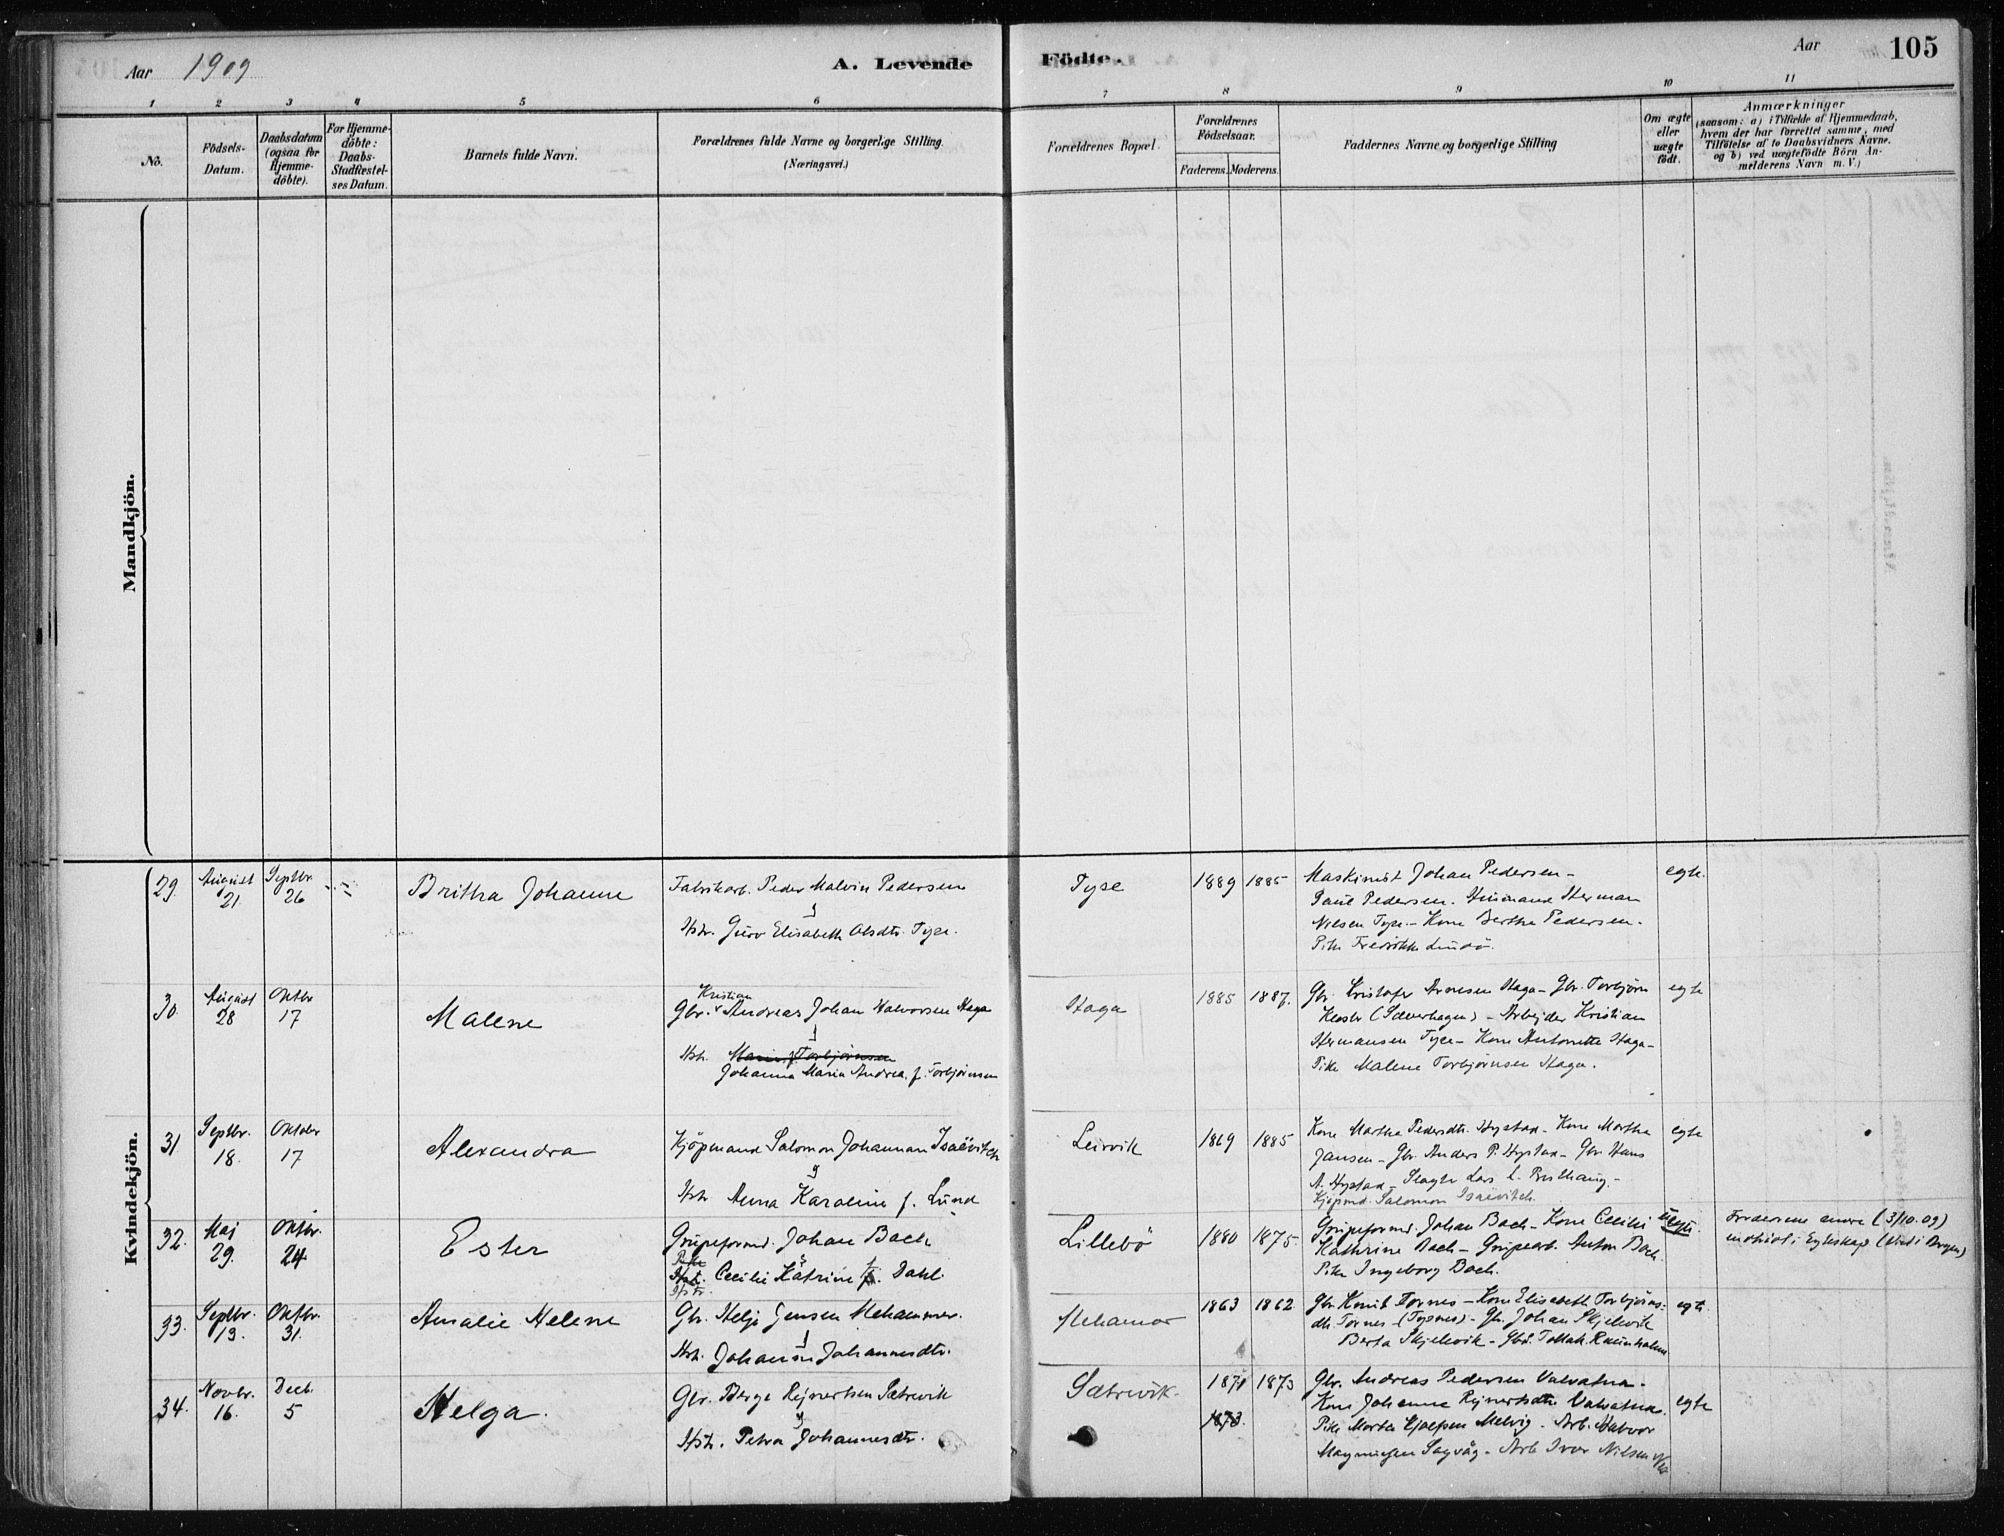 Aar 1909
A. Levende
Födte.
Aar
105
1 2 3 4 5 6 7 8 9 10 11
No.
Födsels-
Datum.
Daabsdatum
(ogsaa for
Hjemme-
döbte).
For Hjemme-
döbte:
Daabs-
Stadfæstel-
ses Datum.
Barnets fulde Navn.
Forældrenes fulde Navne og borgerlige Stilling.
(Næringsvei.)
Forældrenes Bopæl.
Forældrenes
Födselsaar.
Faderens. Moderens.
Faddernes Navne og borgerlige Stilling
Om ægte
eller
uægte
födt.
Anmærkninger
(saasom: a) i Tilfælde af Hjemmedaab,
hvem der har forrettet samme, med
Tilföielse af to Daabsvidners Navne,
og b) ved uægtefödte Börn An-
melderens Navn m. V.)
Mandkjön.
Kvindekjön.
29. August 21. Septbr. 26
Britha Johanne
Fabrikarb. Peder Malvin Pedersen
y
Hstr. Guro Elisabeth Olsdtr. Tyse.
Tyse
1889 1885
Maskinist Johan Pedersen -
Paul Pedersen. Husmand Herman
Nielsen Tyse - Kone Bertha Pedersen.
Pike Fredrikke Lindö.
egte.
30. August 28 Oktbr 17
Malene
Kristian
Gbr. Andreas Johan Halvorsen Haga
Hstr. Maria f. Torbjørnsen
Johanna Maria Andrea f. Torbjörnsen
Haga
1885 1887.
Gbr. Kristofer Arnesen Haga - Gbr. Torbjörn
(Sæverhagen) - Arbejder Kristian
Hermansen Tyse - Kone Antonette Haga -
Pike Malene Torbjørnsen Haga.
egte
31 Septbr. 18. Oktober 17
Alexandra
Kjöpmand Salomon Johannan Isaëvitch
y
Hstr. Anna Karoline f. Lund
Leirvik
1869 1885
Kone Martha Pedersdtr. Hystad - Kone Martha
Jansen - Gbr. Anders P. Hystad - Gbr Hans
A. Hystad - Lars
Kjöpmd. Salomon Isaëvitch.
egte
32. Maj 29. Oktbr. 24
Ester
Grubeformd. Johan Bach
Pike
Cecilie Katrine f. Dahl.
Hstr.
Lillebö
1880 1875.
Grubeformd. Johan Bach - Kone Cecilie
Kathrine Bach - Grubearb. Anton Bach
Pike Ingeborg Bach.
uegte.
(3/10.09)
indtraadt i Egteskap (Viet i Bergen)
33. Septbr. 13. Oktbr. 31.
Amalie Helene
Gbr. Helje Jensen Mehammer.
Hstr. Johanne Johannesdtr.
Mehamar
1863 1862
Gbr Knut Tornes - Kone Elisabeth Torbjörns-
dtr. Tornes - (Tysnes) - Gbr. Johan Skjelevik
Berta Skjelevik - Gbr.
egte.
34. Novbr. 16. Decb. 5
Helga.
Gbr. Berge Rejnertsen Sætrevik
y
Hstr. Petra Johannesdtr.
Sætrevik
1871 1873
1873.
Gbr. Andreas Pedersen Valvatna.
Kone Johanne Rejnertsdtr Valvatna.
Pike Martha Melvig - Arb. Halvor
Magnussen Sagvåg - Arb Ivar Nilsen
egte